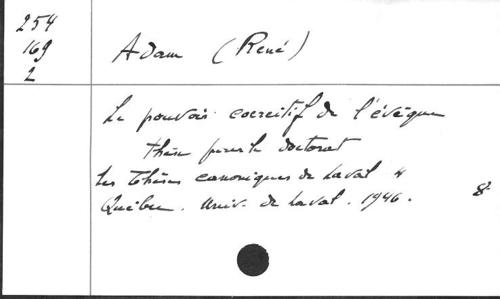 254
169
2
Adam (René)
Le pouvoir coercitif de l'évêque
thèse pour le doctorat
Les Thèses canoniques de Laval 4
Québec. Univ. de Laval. 1946. 8°